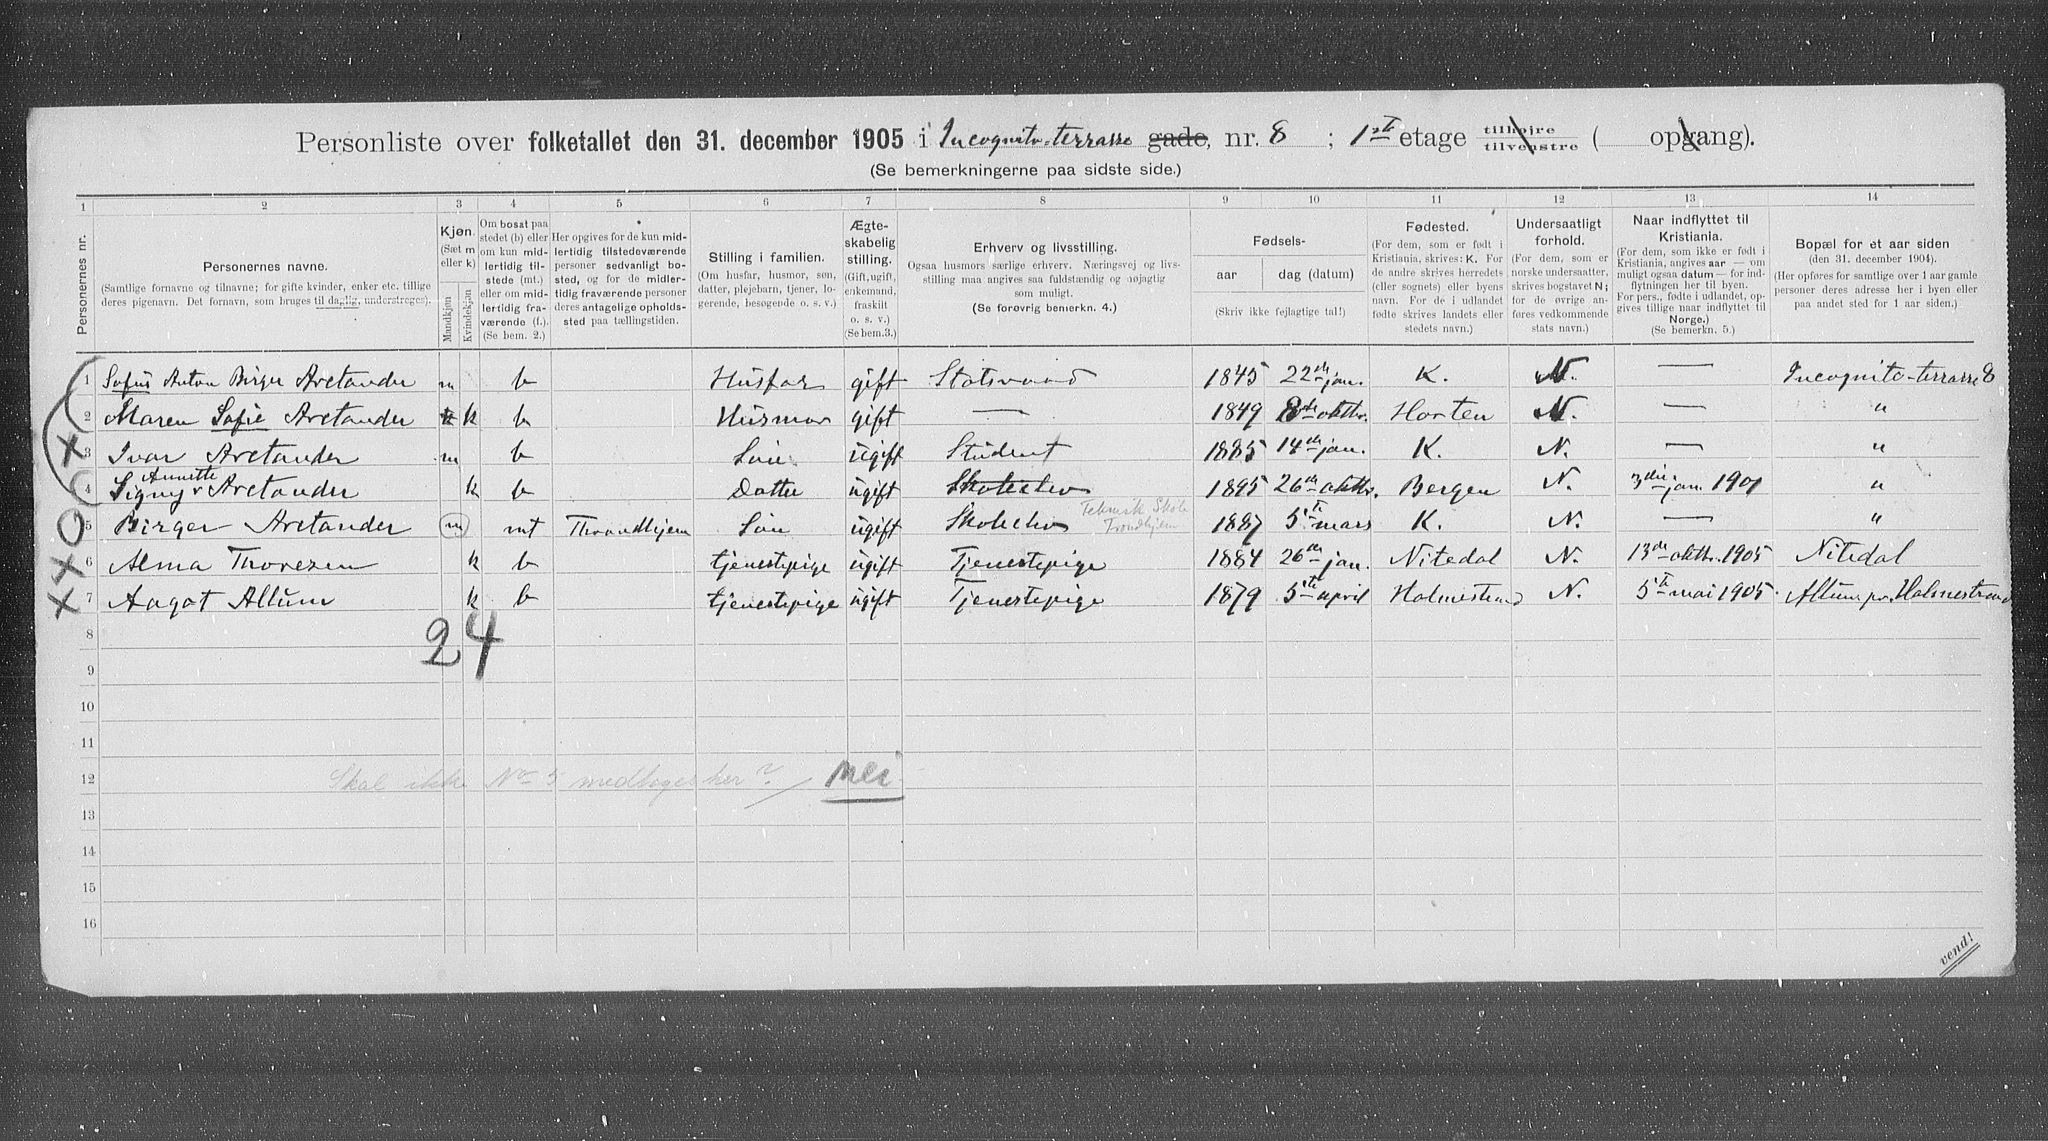 Personliste over folketallet den 31. december 1905 i Incognito-terrasse gade, nr. 8 ; 1ste etage tilhøjre tilvenstre ( opgang).
(Se bemerkningerne paa sidste side.)
1 2 3 4 5 6 7 8 9 10 11 12 13 14
Personernes nr.
Personernes navne.
(Samtlige fornavne og tilnavne; for gifte kvinder, enker etc. tillige
deres pigenavn. Det fornavn, som bruges til daglig, understreges).
Kjøn.
(Sæt m
eller k)
Mandkjøn
Kvindekjøn
Om bosat paa
stedet (b) eller
om kun mid-
lertidig til-
stede (mt.)
eller om mid-
lertidig fra-
værende (f.).
(Se bem. 2.)
Her opgives for de kun mid-
lertidig tilstedeværende
personer sedvanlig bo-
sted, og for de midler-
tidig fraværende personer
deres antagelige opholds-
sted paa tællingstiden.
Stilling i familien.
(Om husfar, husmor, søn,
datter, plejebarn, tjener, lo-
gerende, besøgende o. s. v.)
Ægte-
skabelig
stilling.
(Gift, ugift,
enkemand,
fraskilt
o. s. v.)
(Se bem. 3.)
Erhverv og livsstilling.
Ogsaa husmors særlige erhverv. Næringsvej og livs-
stilling maa angives saa fuldstændig og nøjagtig
som muligt.
(Se forøvrig bemerkn. 4.)
Fødsels-
aar dag (datum)
(Skriv ikke fejlagtige tal!)
Fødested.
(For dem, som er født i
Kristiania, skrives: K. For
de andre skrives herredets
(eller sognets) eller byens
navn. For de i udlandet
fødte skrives landets eller
stedets navn.)
Undersaatligt
forhold.
(For dem, som er
norske undersaatter,
skrives bogstavet N;
for de øvrige an-
føres vedkommende
stats navn.)
Naar indflyttet til
Kristiania.
(For dem, som ikke er født i
Kristiania, angives aar — om
muligt ogsaa datum — for ind-
flytningen her til byen.
For pers., fødte i udlandet, op-
gives tillige naar indflyttet til
Norge.)
(Se bemerkn. 5.)
Bopæl for et aar siden
(den 31. december 1904).
(Her opføres for samtlige over 1 aar gamle
personer deres adresse her i byen eller
paa andet sted for 1 aar siden.)
1 Sofus Anton Birger Arctander m b Husfar gift Statsraad 1845 22de jan. K. N. — Incognito-terrasse 8
2 Maren Sofie Arctander k b Husmor gift — 1849 8de oktbr. Horten N. — "
3 Ivar Arctander m b Søn ugift Student 1885 14de jan. K. N. — "
Annette
4 Signy Arctander k b Datter ugift Skoleelev 1895 26de oktbr. Bergen N. 3die jan. 1901 "
Teknisk Skole
5 Birger Arctander m mt Throndhjem Søn ugift Skoleelev Trondhjem 1887 5te mars K. N. — "
6 Alma Thoresen k b tjenestepige ugift Tjenestepige 1884 26de jan. Nitedal N. 13de oktbr. 1905 Nitedal
7 Aagot Allum k b tjenestepige ugift Tjenestepige 1879 5te april Holmestrand N. 5te mai 1905. Allum pr. Holmestrand
24
8
9
10
11
12 Skal ikke No 5 medtages her? / Nei
13
14
15
16
vend!